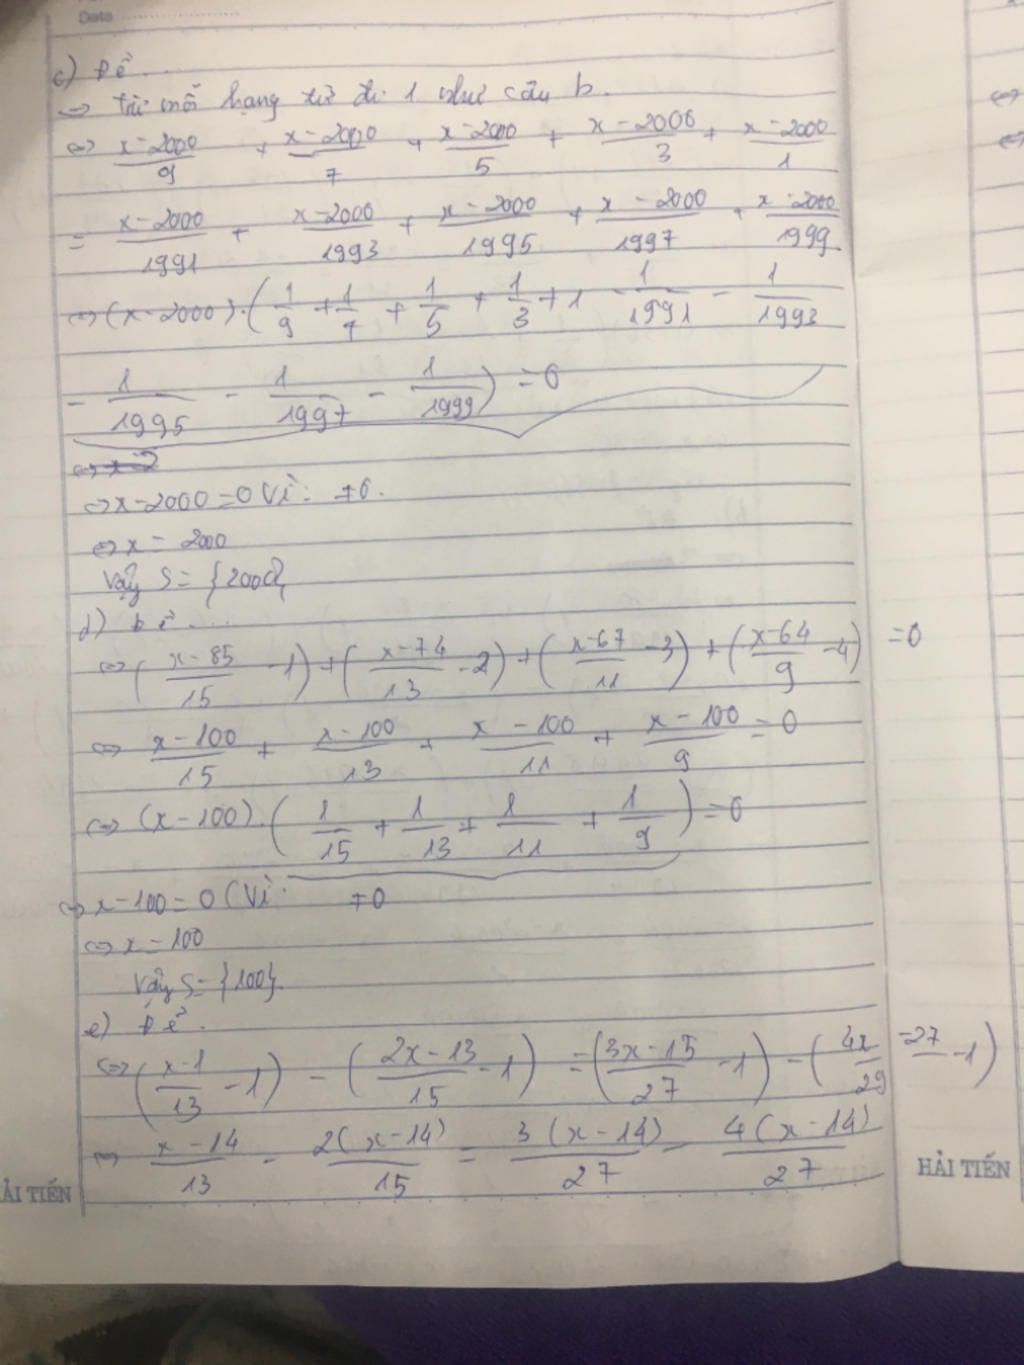 Date
c) Đề...
⇔ trừ mỗi hạng tử đi 1 như câu b.
⇔ x-2000/9 + x-2000/7 + x-2000/5 + x-2000/3 + x-2000/1
= x-2000/1991 + x-2000/1993 + x-2000/1995 + x-2000/1997 + x-2000/1999
⇔ (x-2000).(1/9 + 1/7 + 1/5 + 1/3 + 1 - 1/1991 - 1/1993
- 1/1995 - 1/1997 - 1/1999) = 0
⇔ x-2000=0 Vì: ≠0.
⇔ x = 2000
Vậy S = {2000}
d) Đề...
⇔ (x-85/15 - 1) + (x-74/13 - 2) + (x-67/11 - 3) + (x-64/9 - 4) = 0
⇔ x-100/15 + x-100/13 + x-100/11 + x-100/9 = 0
⇔ (x-100).(1/15 + 1/13 + 1/11 + 1/9) = 0
⇔ x-100 = 0 (Vì: ≠0
⇔ x = 100
Vậy S = {100}.
e) Đề.
⇔ (x-1/13 - 1) - (2x-13/15 - 1) = (3x-15/27 - 1) - (4x-27/29 - 1)
⇔ x-14/13 - 2(x-14)/15 = 3(x-14)/27 - 4(x-14)/27
HẢI TIẾN
HẢI TIẾN